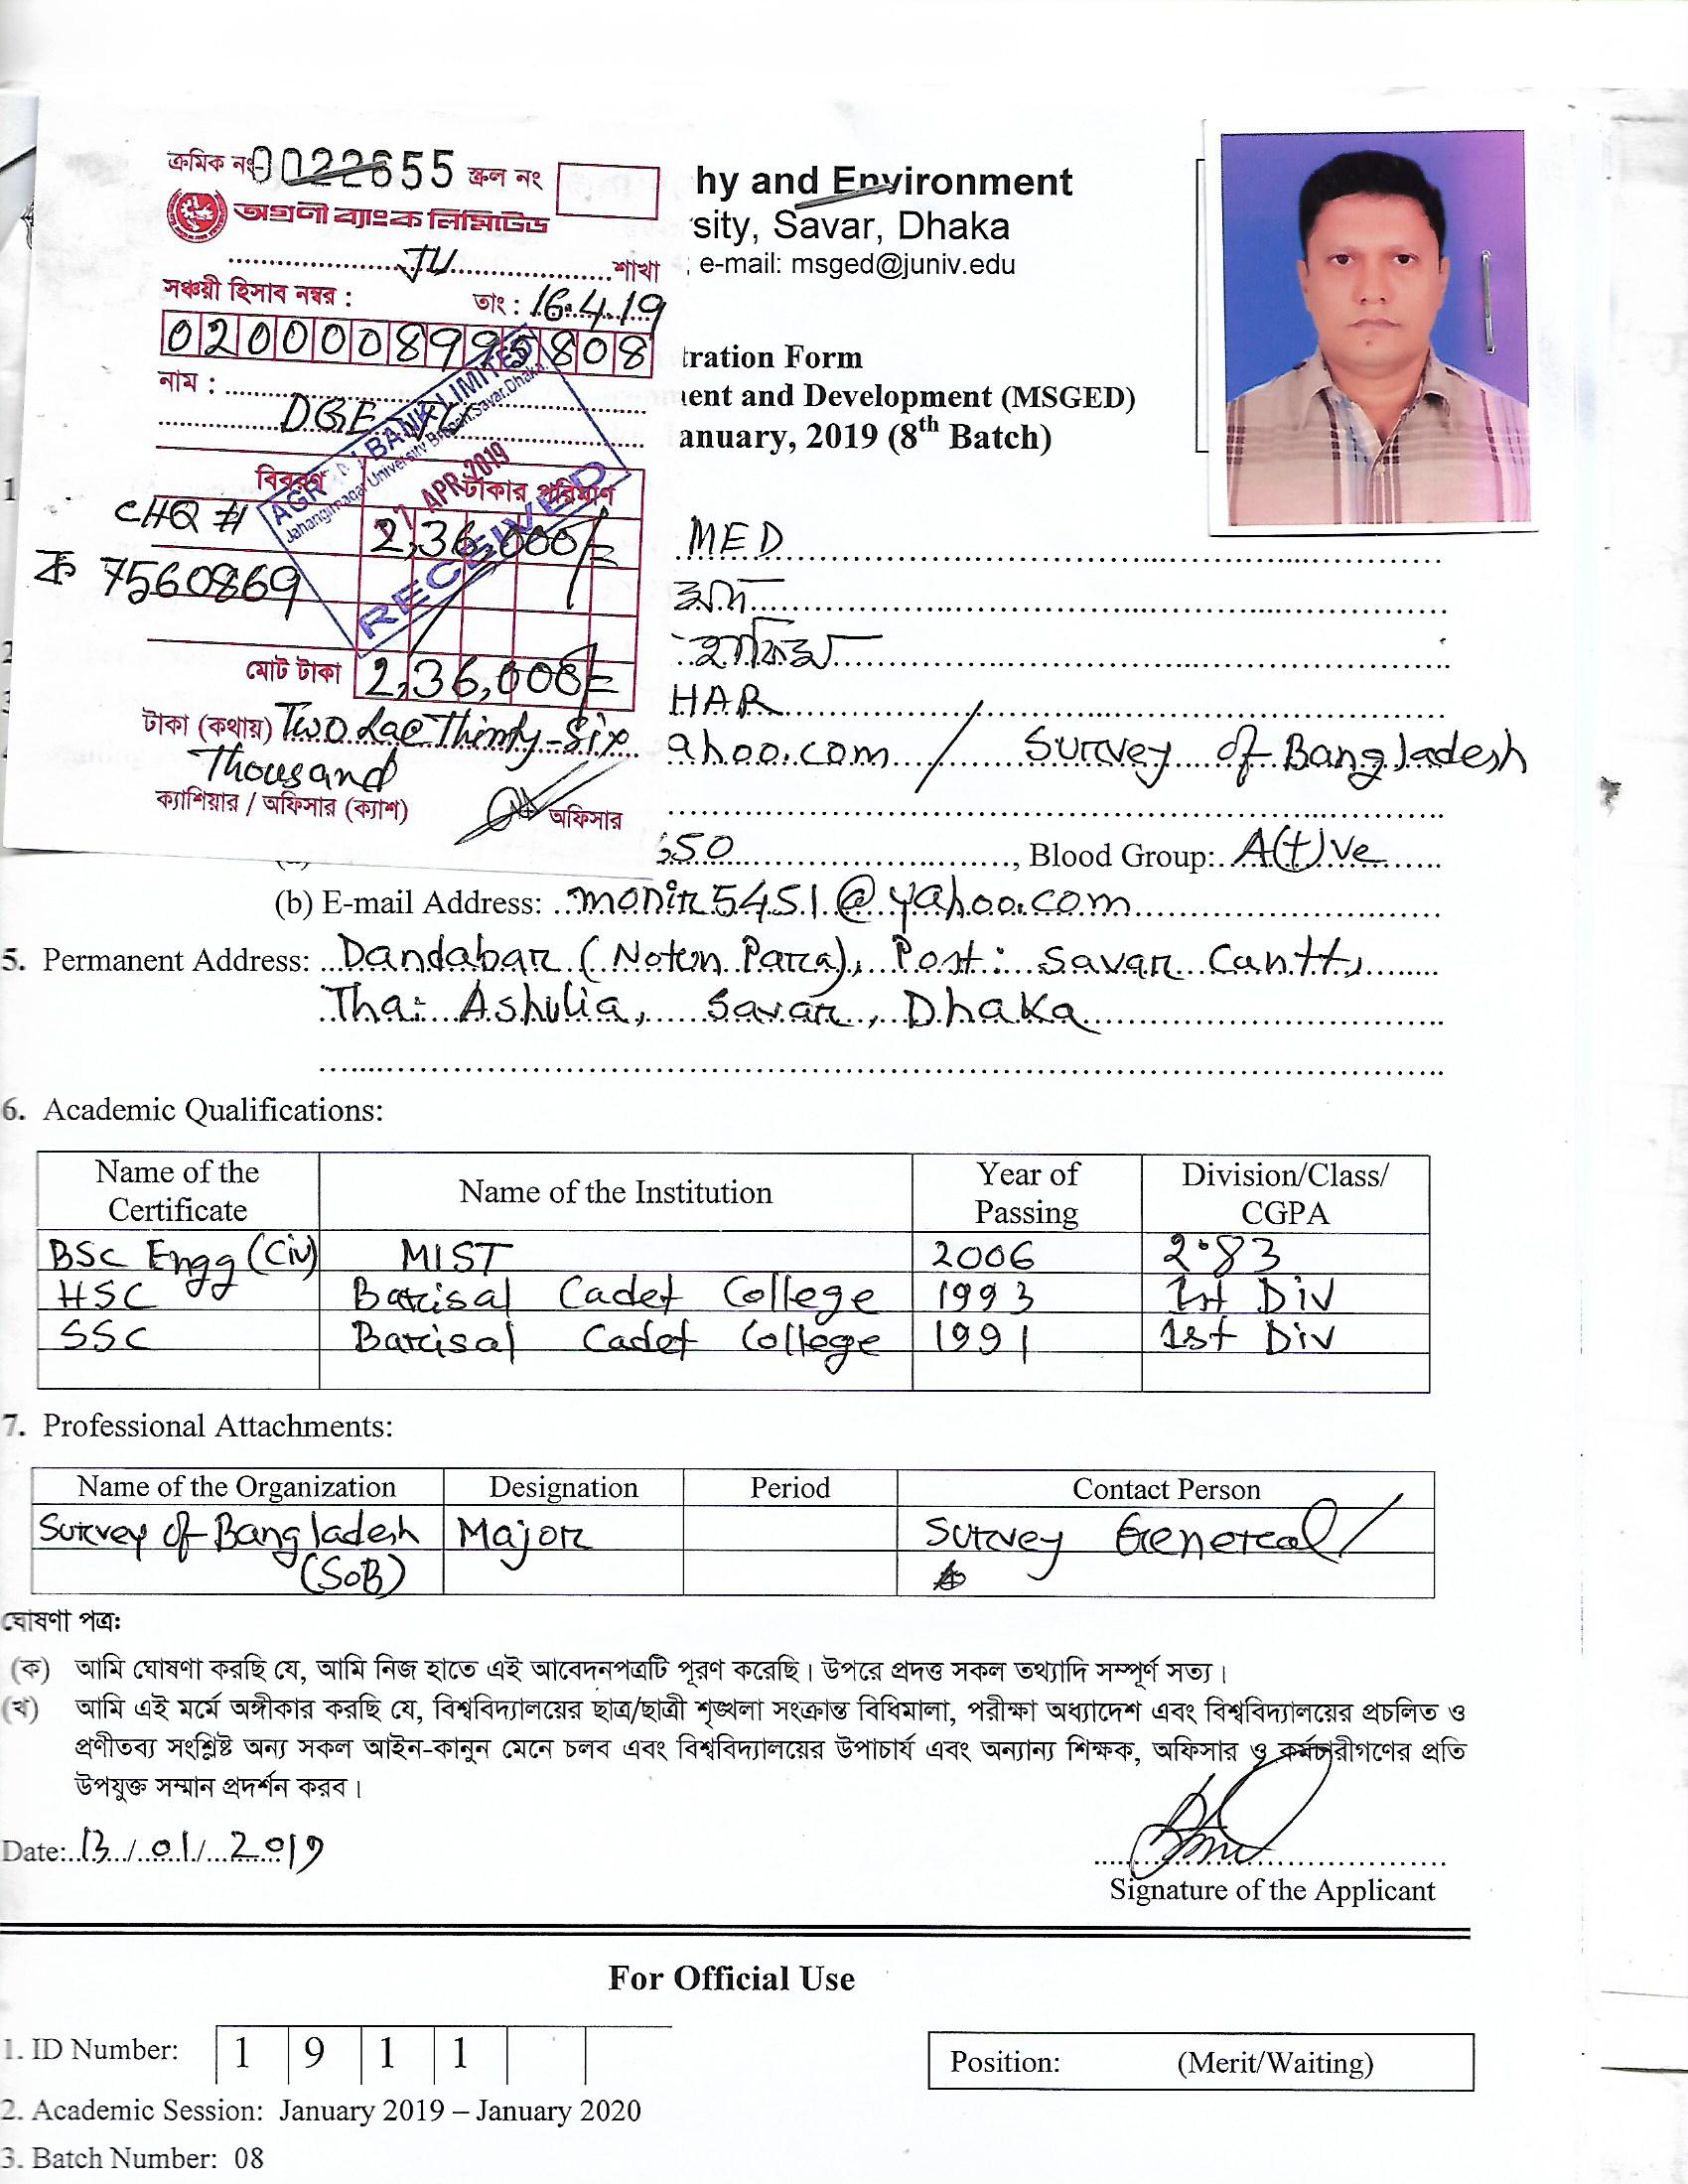 ক্রমিক নং 0022655 স্ক্রল নং
অগ্রণী ব্যাংক লিমিটেড
JU শাখা
সঞ্চয়ী হিসাব নম্বর : তাং : 16.4.19
0200008995808
নাম :
DGE, JU
AGRANI BANK LIMITED
Jahangirnagar University Branch, Savar, Dhaka.
17 APR 2019
RECEIVED
বিবরণ টাকার পরিমাণ
CHQ # 2,36,000/=
ক 7560869
মোট টাকা 2,36,000/=
টাকা (কথায়) Two Lac Thirty-Six
Thousand
ক্যাশিয়ার / অফিসার (ক্যাশ) অফিসার
hy and Environment
sity, Savar, Dhaka
; e-mail: msged@juniv.edu
tration Form
ent and Development (MSGED)
anuary, 2019 (8th Batch)
1
MED
HAR
ahoo.com / Survey of Bangladesh
650, Blood Group: A(+)ve
(b) E-mail Address: monir5451@yahoo.com
5. Permanent Address: Dandabar (Noton Para), Post: Savar Cantt,
Tha: Ashulia, Savar, Dhaka
6. Academic Qualifications:
Name of the Certificate Name of the Institution Year of Passing Division/Class/ CGPA
BSc Engg (Civ) MIST 2006 2.83
HSC Barisal Cadet College 1993 1st Div
SSC Barisal Cadet College 1991 1st Div
7. Professional Attachments:
Name of the Organization Designation Period Contact Person
Survey of Bangladesh Major Survey General/
(SoB)
ঘোষণা পত্র:
(ক) আমি ঘোষণা করছি যে, আমি নিজ হাতে এই আবেদনপত্রটি পূরণ করেছি। উপরে প্রদত্ত সকল তথ্যাদি সম্পূর্ণ সত্য।
(খ) আমি এই মর্মে অঙ্গীকার করছি যে, বিশ্ববিদ্যালয়ের ছাত্র/ছাত্রী শৃঙ্খলা সংক্রান্ত বিধিমালা, পরীক্ষা অধ্যাদেশ এবং বিশ্ববিদ্যালয়ের প্রচলিত ও
প্রণীতব্য সংশ্লিষ্ট অন্য সকল আইন-কানুন মেনে চলব এবং বিশ্ববিদ্যালয়ের উপাচার্য এবং অন্যান্য শিক্ষক, অফিসার ও কর্মচারীগণের প্রতি
উপযুক্ত সম্মান প্রদর্শন করব।
Date: 13/01/2019
Signature of the Applicant
For Official Use
1. ID Number: 1 9 1 1
Position: (Merit/Waiting)
2. Academic Session: January 2019 – January 2020
3. Batch Number: 08